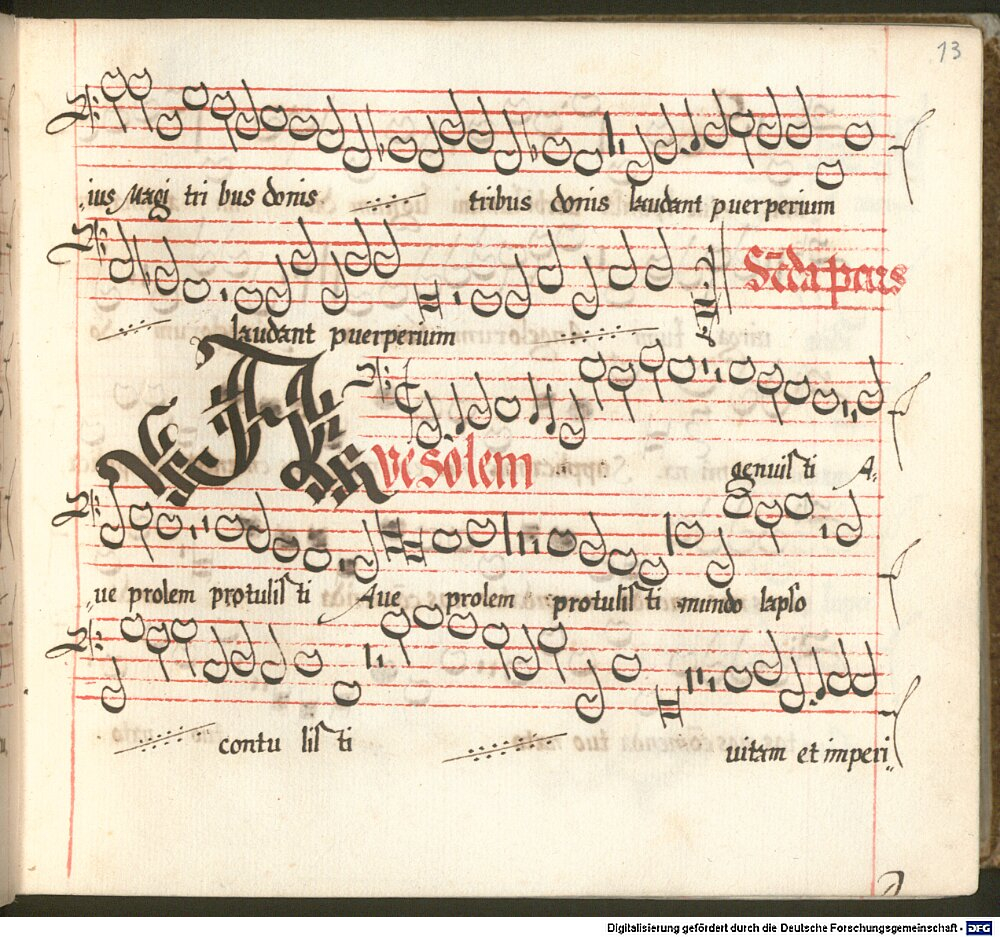 13
ius Magi tri bus donis tribus donis laudant puerperium
Sec̄da pars
laudant puerperium
Ave solem
genuisti A.
ue prolem protulisti Aue prolem protulisti mundo lapso
contu listi uitam et imperi
Digitalisierung gefördert durch die Deutsche Forschungsgemeinschaft - DFG